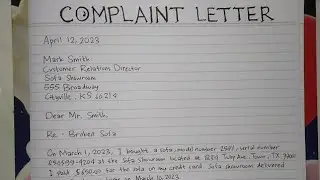 COMPLAINT LETTER
April 12, 2023
Mark Smith
Customer Relations Director
Sofa Showroom
555 Broadway
KS
Dear Mr. Smith,
Re - Broken Sofa
On March 1, 2023, I bought a sofa, model number serial number
at the Sofa Showroom located at Town, TX
I paid for the sofa on my credit card. Sofa Showroom delivered
on March 10, 2023